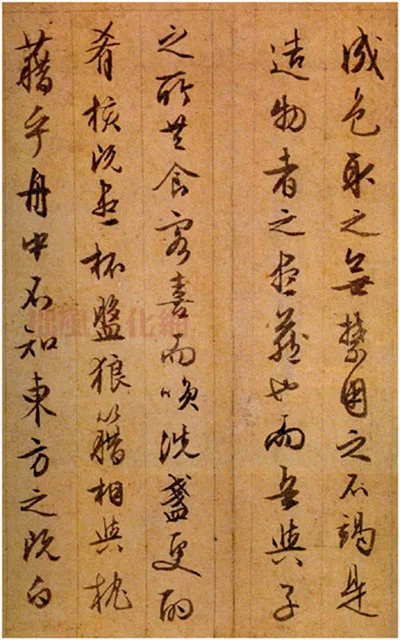 成色取之無禁用之不竭是
造物者之盡藏也而吾與子
之所共食客喜而笑洗盞更酌
肴核既盡杯盤狼籍相與枕
藉乎舟中不知東方之既白